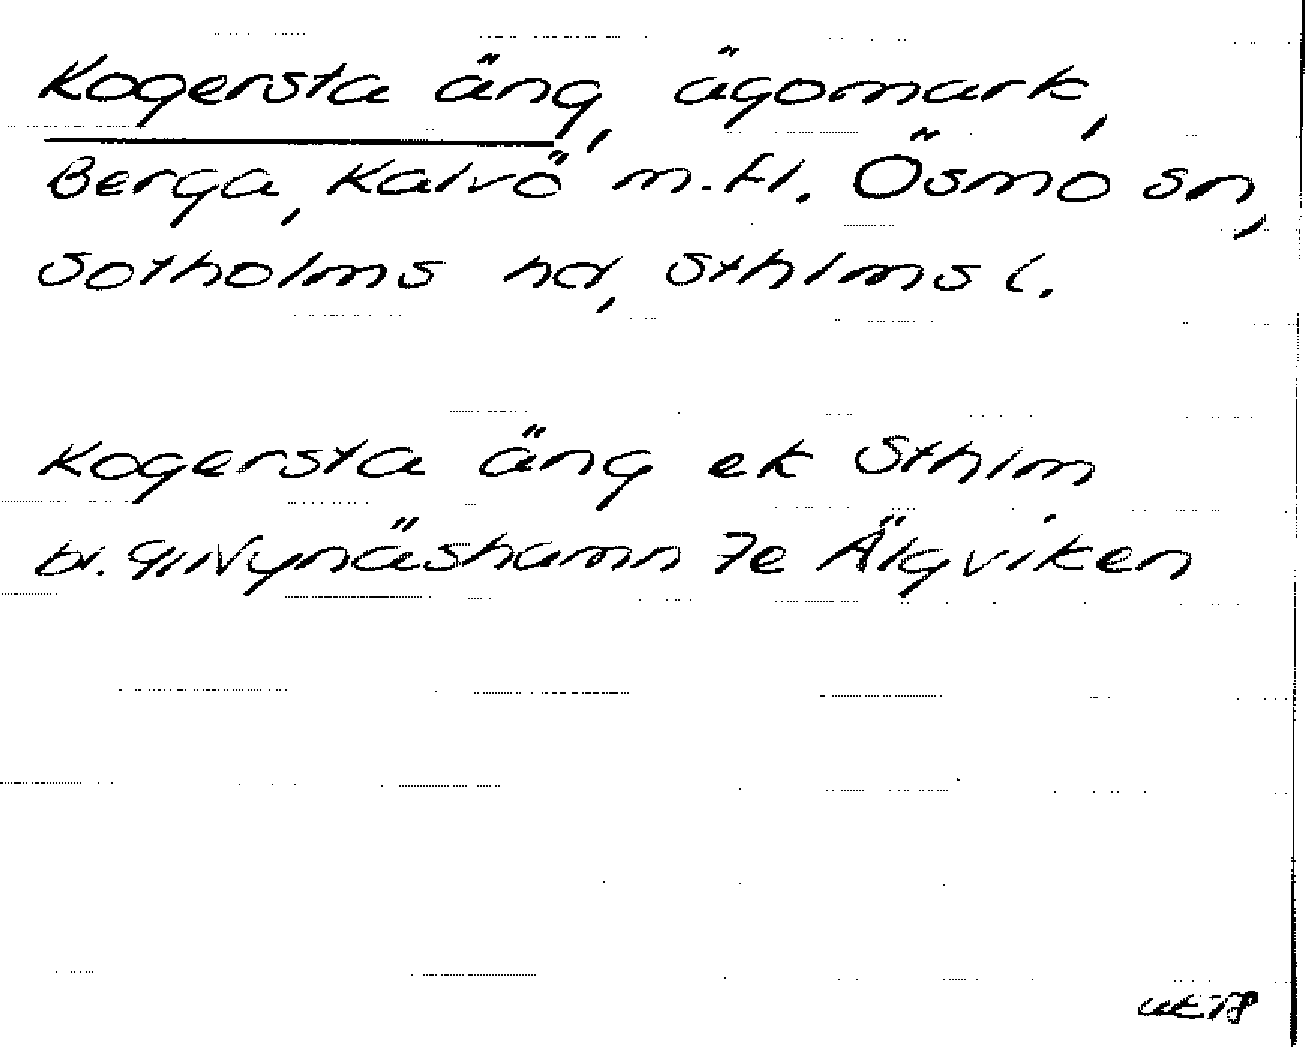 Kogersta äng, ägomark,
Berga, Kalvö m.fl. Ösmo sn,
Sotholms hd, Sthlms l.
Kogersta äng ek Sthlm
bl. 9II Nynäshamn 7e Älgviken